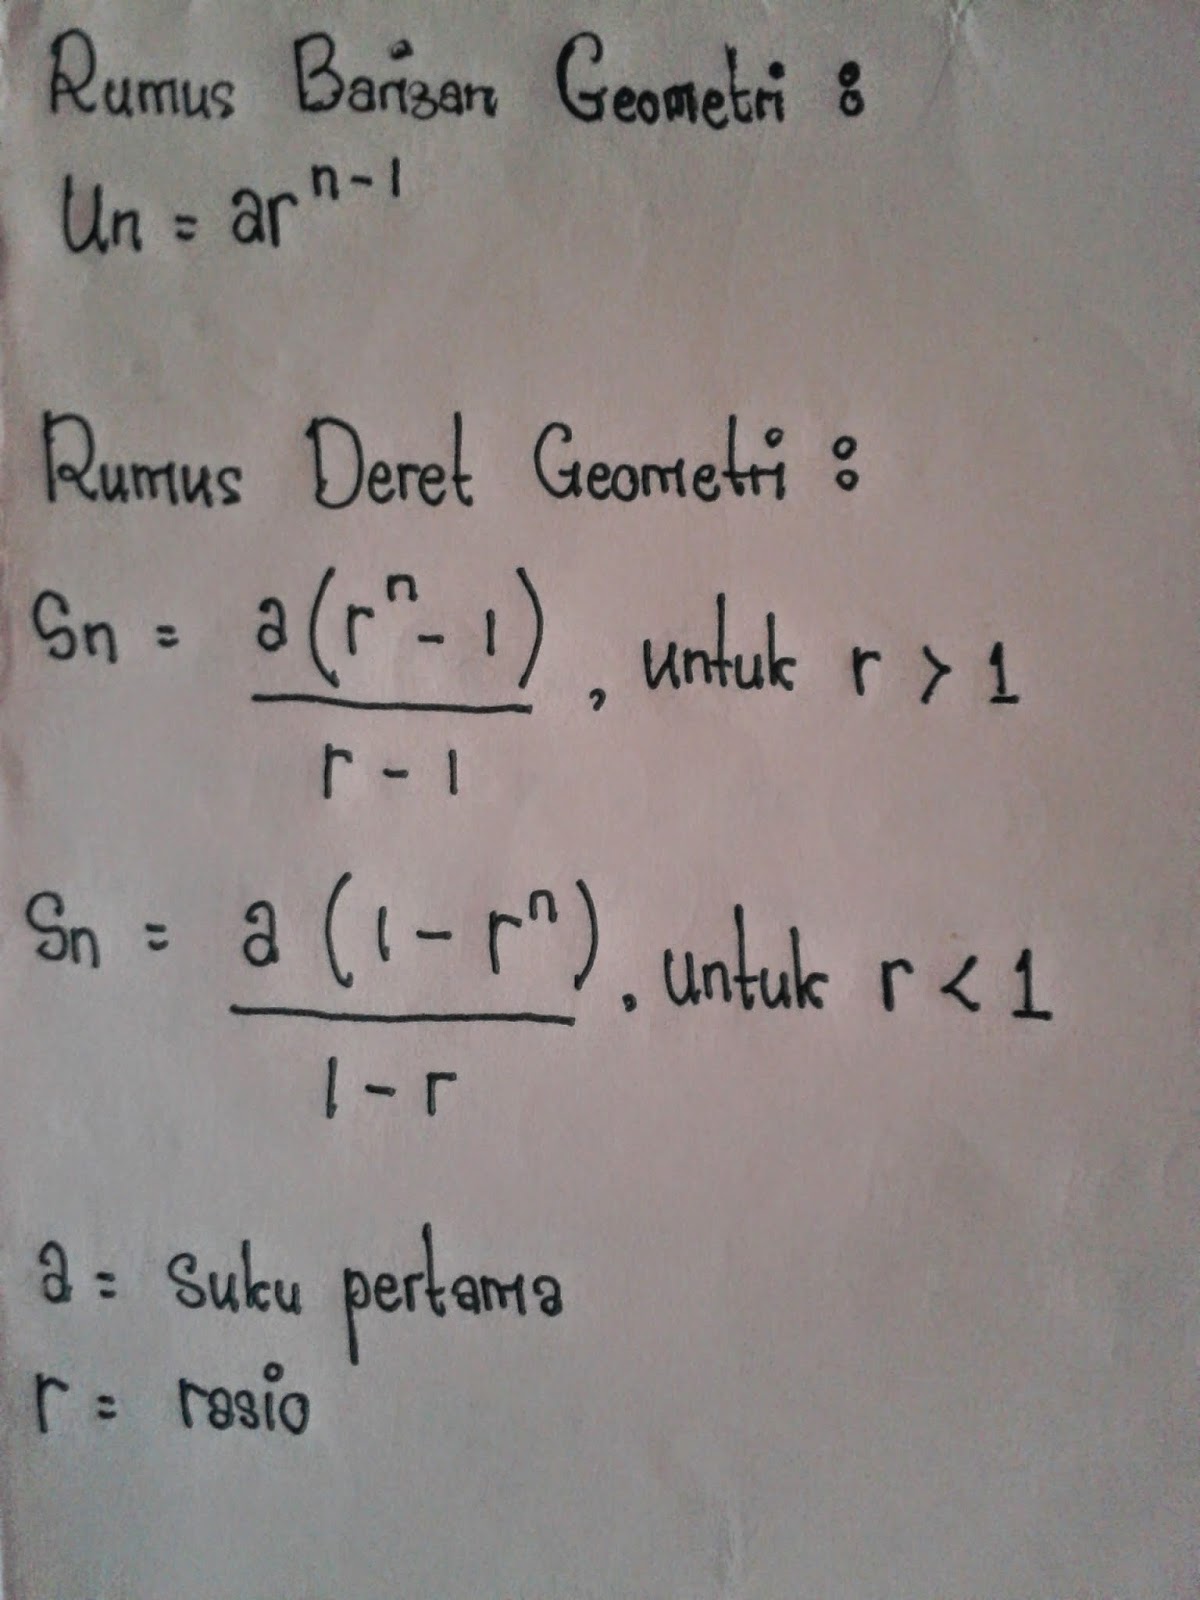 Rumus Barisan Geometri :
Un = ar^n-1
Rumus Deret Geometri :
Sn = a(r^n - 1) / r - 1 , untuk r > 1
Sn = a (1 - r^n) / 1 - r , untuk r < 1
a = suku pertama
r = rasio